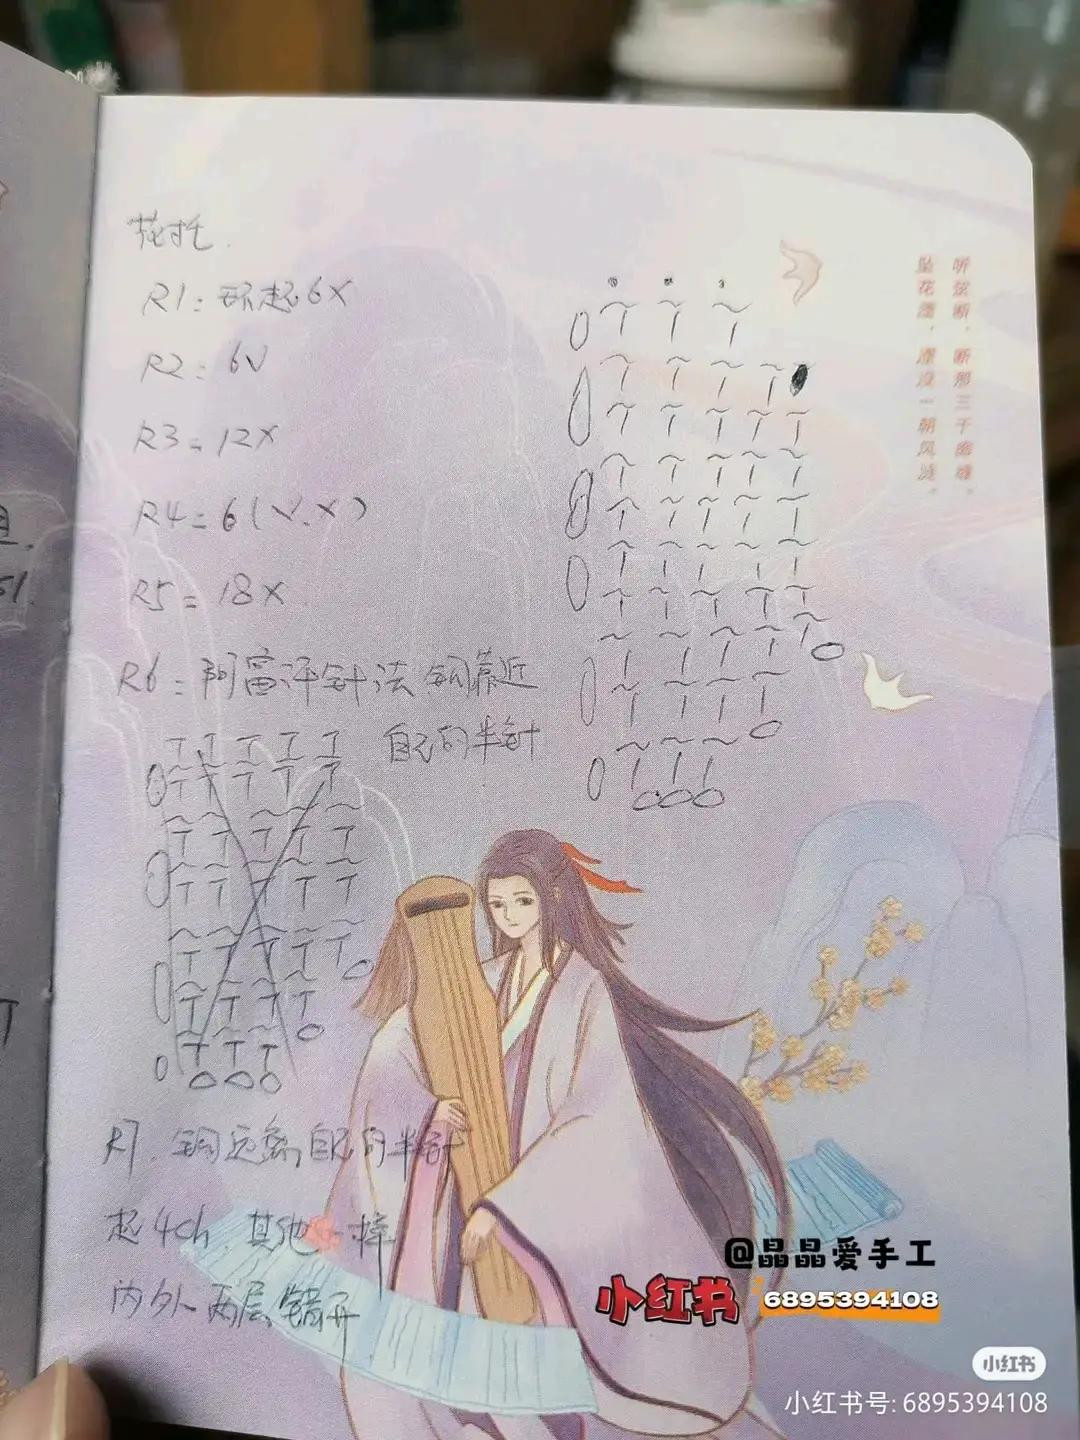 花托.
R1: 环起6X
R2: 6V
R3= 12X
R4= 6(V.X)
R5= 18X
R6: 阿富汗针法 钩靠近
自己的半针
R7. 钩远离自己的半针
起4ch, 其他一样
内外两层错开
听弦断，断那三千痴缠。
坠花湮，湮没一朝风涟。
@晶晶爱手工
小红书
6895394108
小红书
小红书号: 6895394108